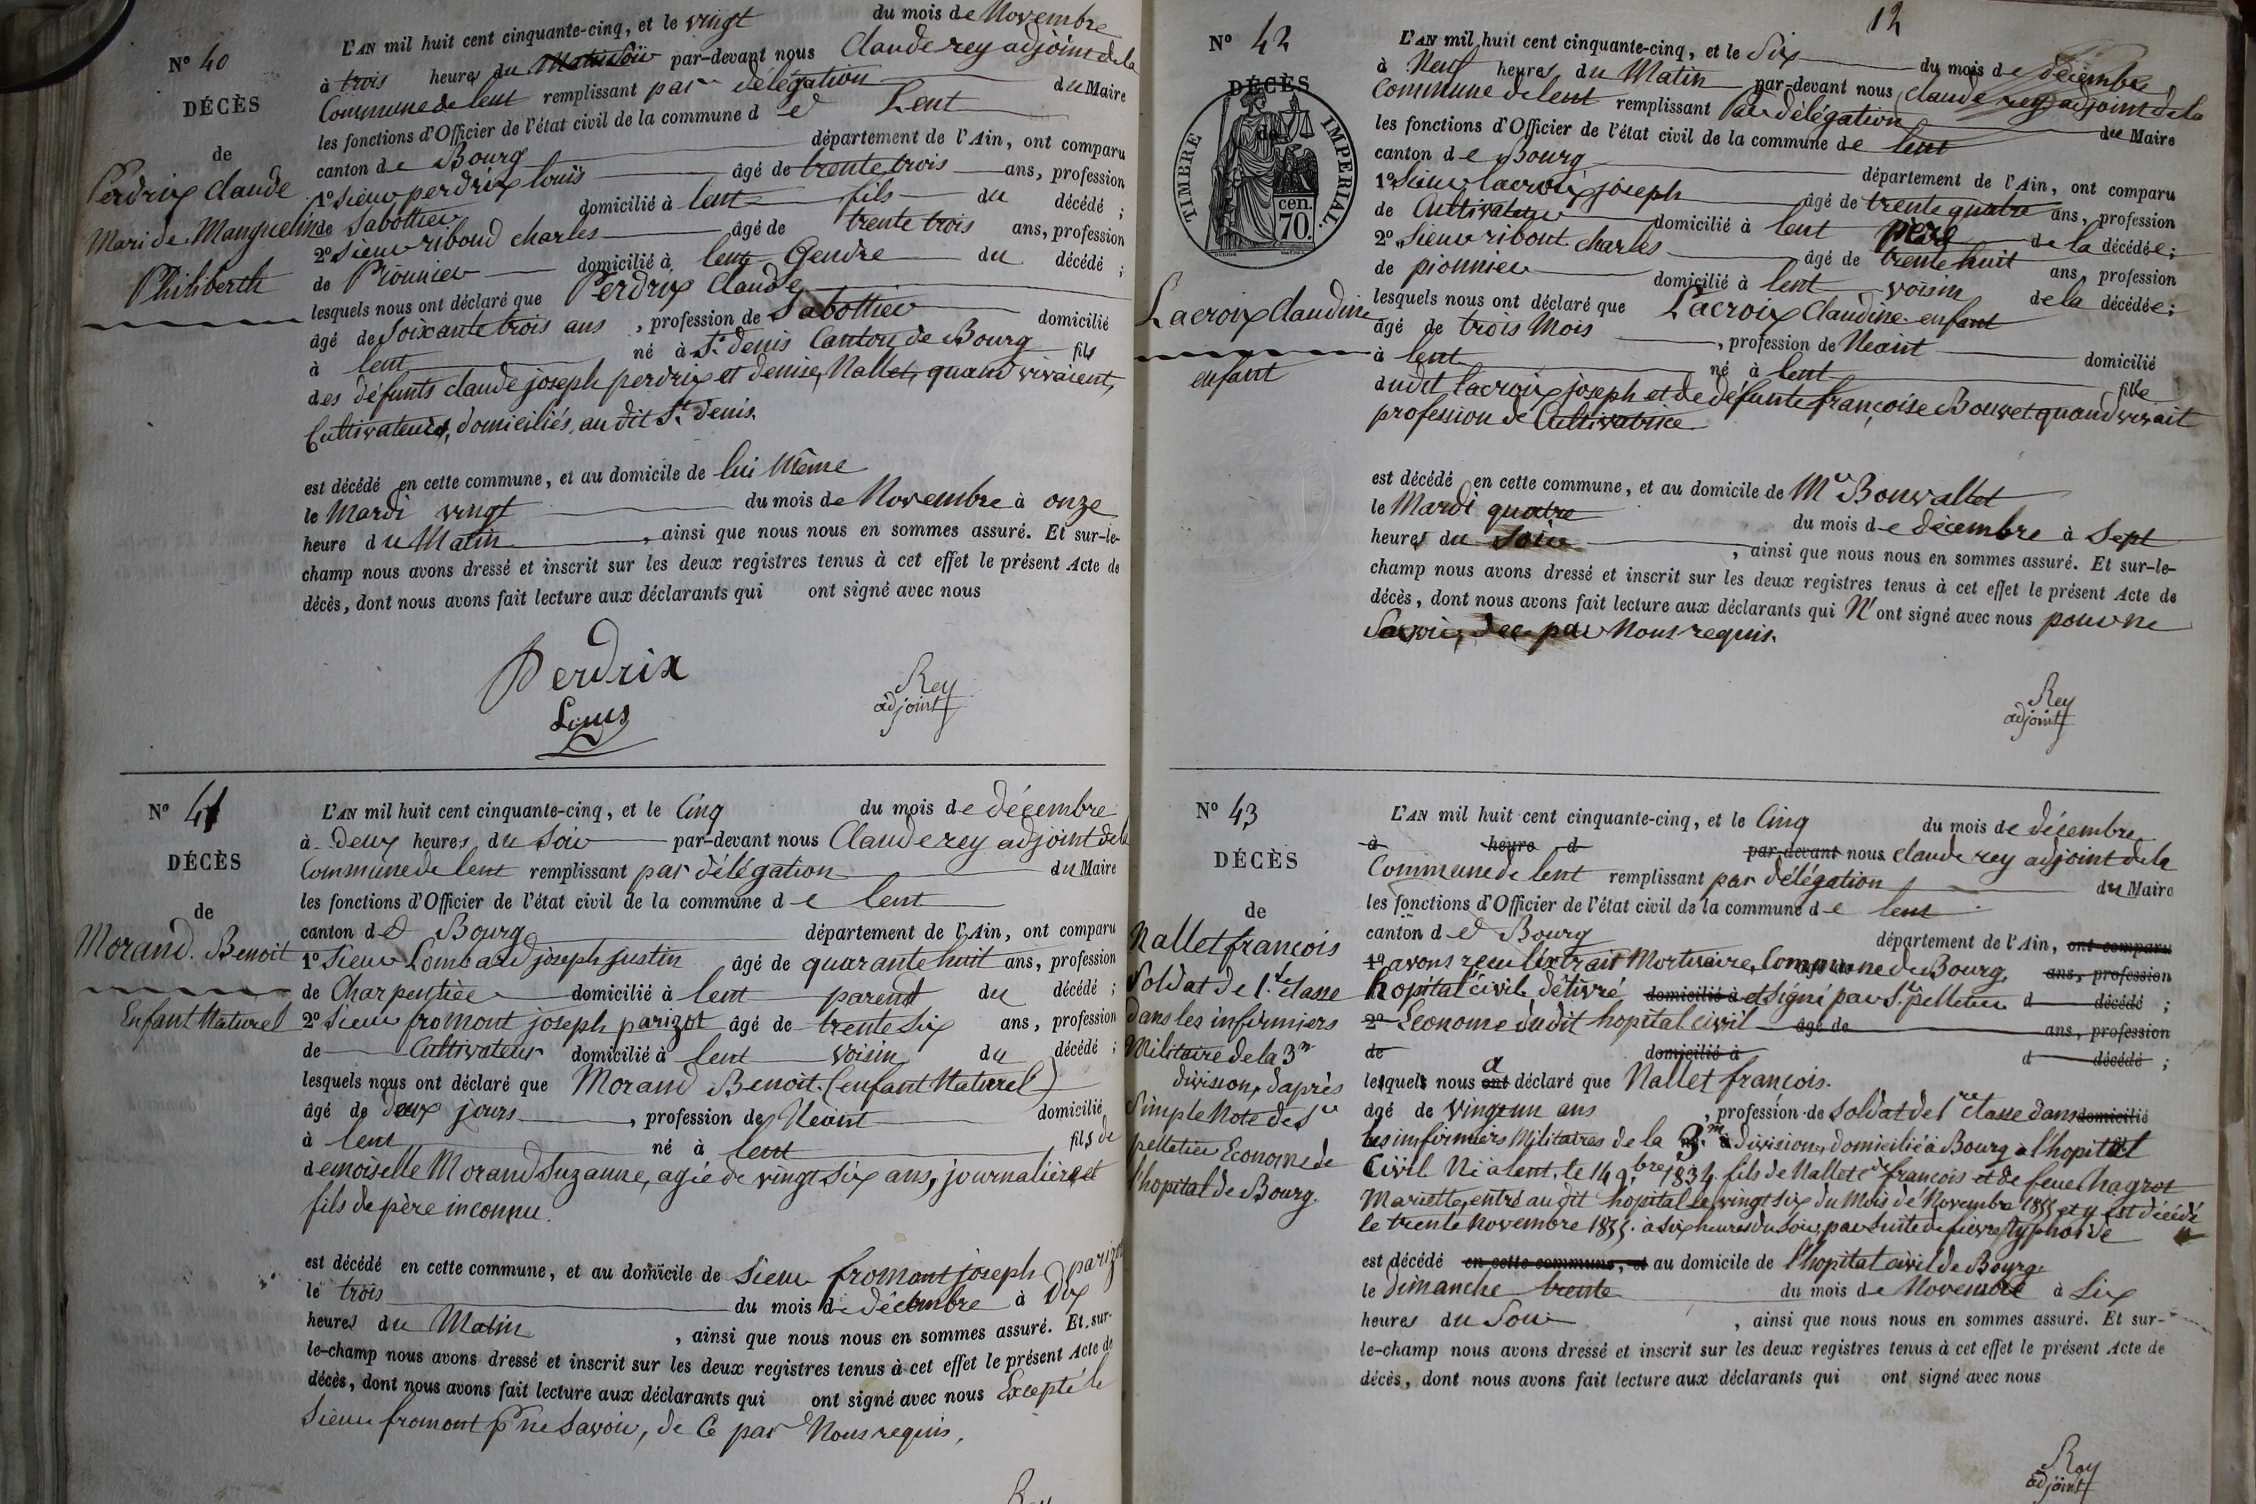 N° 40
DÉCÈS
de
Perdrix Claude
Mari de Manguelin
Philiberth
L'AN mil huit cent cinquante-cinq, et le vingt du mois de Novembre
à trois heures du Soir par-devant nous Claude rey adjoint de la
Commune de lent remplissant par délégation du Maire
les fonctions d'Officier de l'état civil de la commune d e Lent
canton de Bourg département de l'Ain, ont comparu
1° Sieur perdrix louis âgé de trente trois ans, profession
de Sabottier domicilié à lent fils du décédé ;
2° Sieur riboud charles âgé de trente trois ans, profession
de Pionnier domicilié à lent Gendre du décédé ;
lesquels nous ont déclaré que Perdrix Claude
âgé de Soixante trois ans , profession de Sabottier domicilié
à lent né à St. denis Canton de Bourg fils
des défunts claude joseph perdrix et denise Nallet, quand vivaient,
Cultivateurs, domiciliés, au dit St. denis.
est décédé en cette commune, et au domicile de lui Même
le Mardi vingt du mois de Novembre à onze
heure du Matin , ainsi que nous nous en sommes assuré. Et sur-le-
champ nous avons dressé et inscrit sur les deux registres tenus à cet effet le présent Acte de
décès, dont nous avons fait lecture aux déclarants qui ont signé avec nous
Perdrix
Louis
Rey
adjoint
N° 41
DÉCÈS
de
Morand. Benoit
Enfant Naturel
L'AN mil huit cent cinquante-cinq, et le Cinq du mois de décembre
à deux heures du Soir par-devant nous Claude rey adjoint de la
Commune de lent remplissant par délégation du Maire
les fonctions d'Officier de l'état civil de la commune d e lent
canton d e Bourg département de l'Ain, ont comparu
1° Sieur Lombard joseph justin âgé de quarante huit ans, profession
de Charpentier domicilié à lent parent du décédé ;
2° Sieur fromont joseph parizot âgé de trente Six ans, profession
de Cultivateur domicilié à lent voisin du décédé ;
lesquels nous ont déclaré que Morand Benoit (enfant Naturel)
âgé de deux jours , profession de Néant domicilié
à lent né à lent fils de
demoiselle Morand Suzanne, agée de vingt Six ans, journalière et
fils de père inconnu.
est décédé en cette commune, et au domicile de Sieur fromont joseph parizot
le trois du mois de décembre à Dix
heures du Matin , ainsi que nous nous en sommes assuré. Et sur-
le-champ nous avons dressé et inscrit sur les deux registres tenus à cet effet le présent Acte de
décès, dont nous avons fait lecture aux déclarants qui ont signé avec nous Excepté le
Sieur fromont pr ne Savoir, de Ce par Nous requis.
12
N° 42
DÉCÈS
de
TIMBRE IMPERIAL.
cen.
70.
Lacroix Claudine
enfant
L'AN mil huit cent cinquante-cinq, et le Six du mois de décembre
à Neuf heures du Matin par-devant nous claude rey adjoint de la
Commune de lent remplissant Par délégation du Maire
les fonctions d'Officier de l'état civil de la commune de lent
canton d e Bourg département de l'Ain, ont comparu
1° Sieur lacroix joseph âgé de trente quatre ans, profession
de Cultivateur domicilié à lent père de la décédée ;
2° Sieur ribout charles âgé de trente huit ans, profession
de pionnier domicilié à lent voisin de la décédée ;
lesquels nous ont déclaré que Lacroix Claudine enfant
âgé de trois Mois , profession de Néant domicilié
à lent né à lent fille
dudit lacroix joseph et de défunte françoise Bouvet quand vivait
profession de Cultivatrice
est décédé en cette commune, et au domicile de Mr Bouvallet
le Mardi quatre du mois de décembre à Sept
heures du Soir , ainsi que nous nous en sommes assuré. Et sur-le-
champ nous avons dressé et inscrit sur les deux registres tenus à cet effet le présent Acte de
décès, dont nous avons fait lecture aux déclarants qui N'ont signé avec nous pour ne
Savoir, de ce par Nous requis.
Rey
adjoint
N° 43
DÉCÈS
de
Nallet françois
Soldat de 1re classe
dans les infirmiers
Militaire de la 3m
division, d'après
Simple Note de Sr
pelletier Econome de
l'hopital de Bourg.
L'AN mil huit cent cinquante-cinq, et le Cinq du mois de décembre
à heure d par-devant nous claude rey adjoint de la
Commune de lent remplissant par délégation du Maire
les fonctions d'Officier de l'état civil de la commune d e lent
canton d e Bourg département de l'Ain, ont comparu
1° avons reçu l'extrait Mortuaire, Commune de Bourg, ans, profession
hopital civil délivré domicilié à et Signé par Sr pelletier d décédé ;
2° Econome du dit hopital civil âgé de ans, profession
de domicilié à d décédé ;
lesquels nous a ont déclaré que Nallet françois.
âgé de vingt un ans , profession de Soldat de 1re classe dans domicilié
les infirmiers Militaires de la 3.m division, domicilié à Bourg à l'hopital
Civil Né à lent, le 14 9.bre 1834. fils de Nallet françois et de feue Chagrot
Mariette, entré au dit hopital le vingt six du Mois de Novembre 1855 et y est décédé
le trente Novembre 1855. à six heures du Soir, par Suite de fievre typhoïde
est décédé en cette commune, et au domicile de l'hopital civil de Bourg
le Dimanche trente du mois de Novembre à Six
heures du Soir , ainsi que nous nous en sommes assuré. Et sur-
le-champ nous avons dressé et inscrit sur les deux registres tenus à cet effet le présent Acte de
décès, dont nous avons fait lecture aux déclarants qui ont signé avec nous
Rey
adjoint